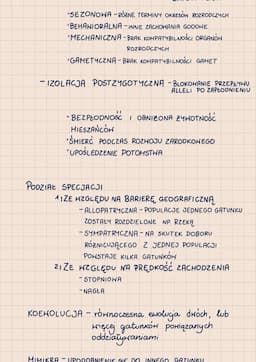 *SEZONOWA - RÓŻNE TERMINY OKRESÓW ROZRODCZYCH
*BEHAWIORALNA - INNE ZACHOWANIA GODOWE
*MECHANICZNA - BRAK KOMPATYBILNOŚCI ORGANÓW
ROZRODCZYCH
*GAMETYCZNA - BRAK KOMPATYBILNOŚCI GAMET
- IZOLACJA POSTZYGOTYCZNA - BLOKOWANIE PRZEPŁYWU
ALLELI PO ZAPŁODNIENIU
*BEZPŁODNOŚĆ I OBNIŻONA ŻYWOTNOŚĆ
MIESZAŃCÓW
*ŚMIERĆ PODCZAS ROZWOJU ZARODKOWEGO
*UPOŚLEDZENIE POTOMSTWA
PODZIAŁ SPECJACJI
1) ZE WZGLĘDU NA BARIERĘ GEOGRAFICZNĄ
- ALLOPATRYCZNA - POPULACJE JEDNEGO GATUNKU
ZOSTAŁY ROZDZIELONE NP. RZEKĄ
- SYMPATRYCZNA - NA SKUTEK DOBORU
RÓŻNICUJĄCEGO Z JEDNEJ POPULACJI
POWSTAJE KILKA GATUNKÓW
2) ZE WZGLĘDU NA PRĘDKOŚĆ ZACHODZENIA
- STOPNIOWA
- NAGŁA
KOEWOLUCJA - równoczesna ewolucja dwóch, lub
więcej gatunków powiązanych
oddziaływaniami
MIMIKRA - UPODOBNIENIE SIĘ DO INNEGO GATUNKU